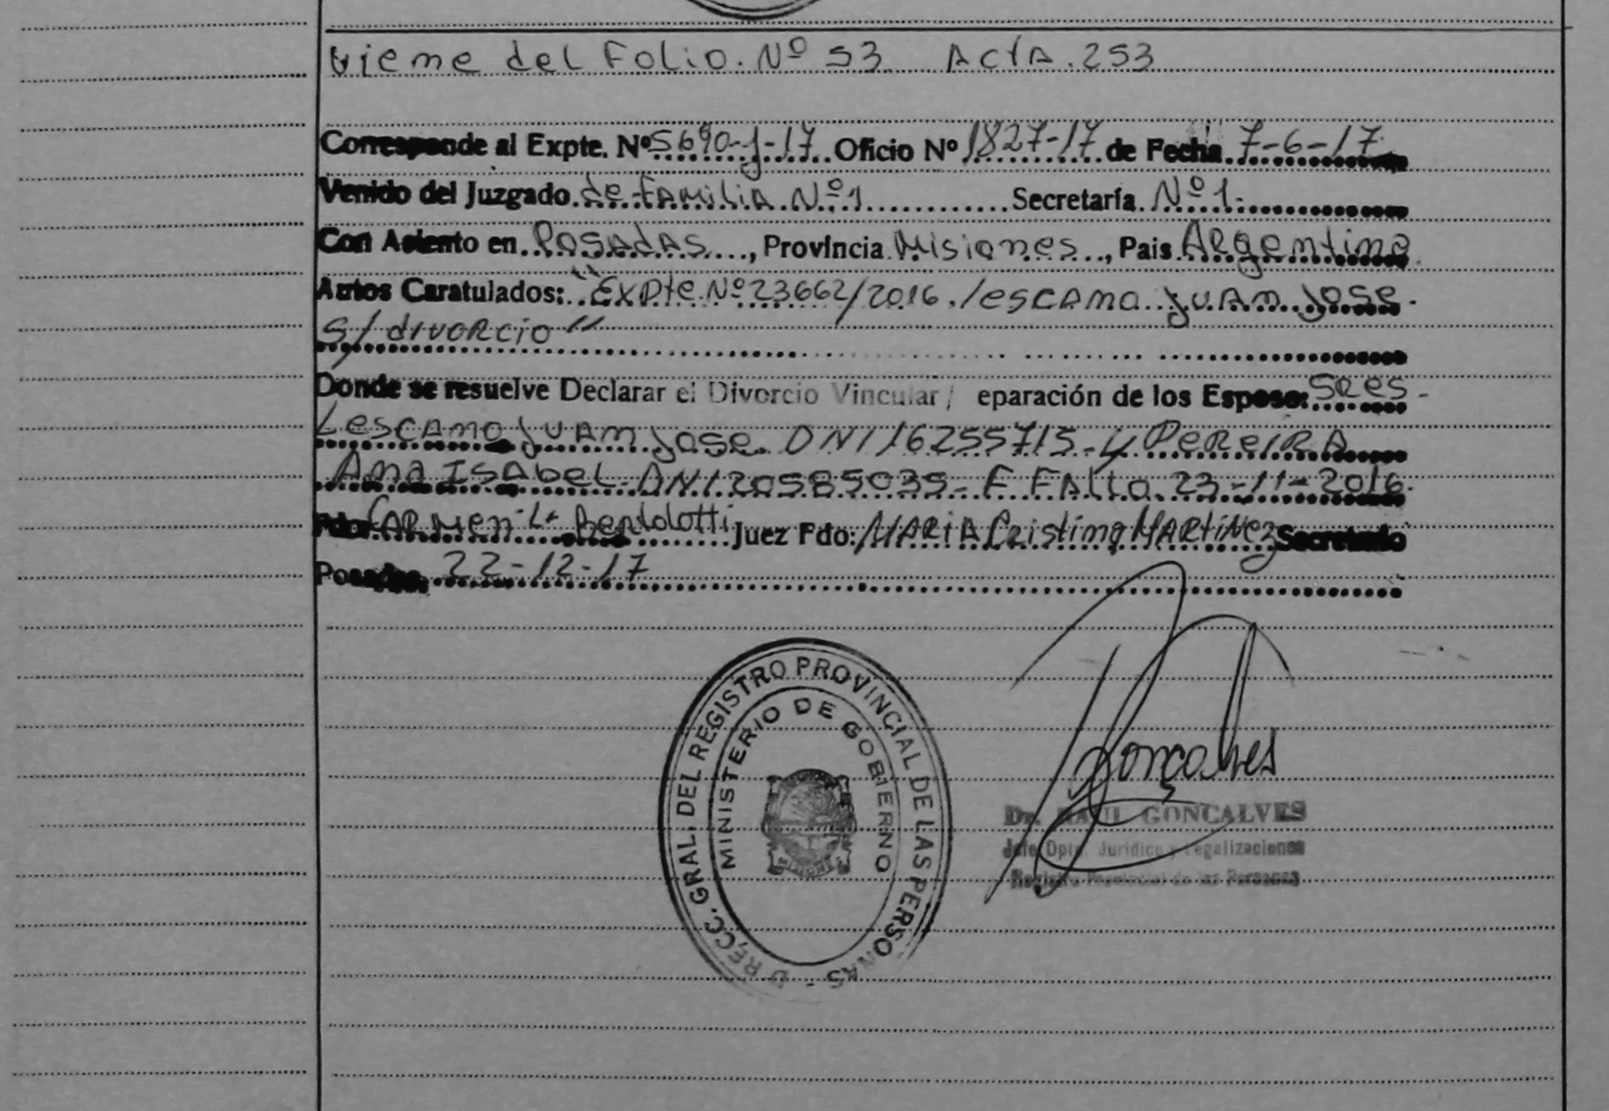 Viene del Folio. Nº 53 Acta. 253
Corresponde al Expte. Nº 5690-J-17. Oficio Nº 1827-17 de Fecha 7-6-17
Venido del Juzgado de Familia Nº 1 Secretaría Nº 1.
Con Asiento en Posadas, Provincia Misiones, Pais Argentina
Autos Caratulados: "Expte. Nº 23662/2016. lescano Juan Jose.
S/ divorcio"
Donde se resuelve Declarar el Divorcio Vincular/ eparación de los Esposos Sres-
Lescano Juan Jose DNI 16255715-y PEREIRA
Ana Isabel-DNI 20585035- F Fallo 23-11-2016.
Fdo: Carmen L. Bertolotti Juez Fdo: MARIA Cristina MARTINEZ Secretario
Posadas, 22-12-17
DIRECC. GRAL. DEL REGISTRO PROVINCIAL DE LAS PERSONAS -
MINISTERIO DE GOBIERNO
Goncalves
Dr. RAUL GONCALVES
Jefe Dpto. Jurídico y Legalizaciones
Registro Provincial de las Personas